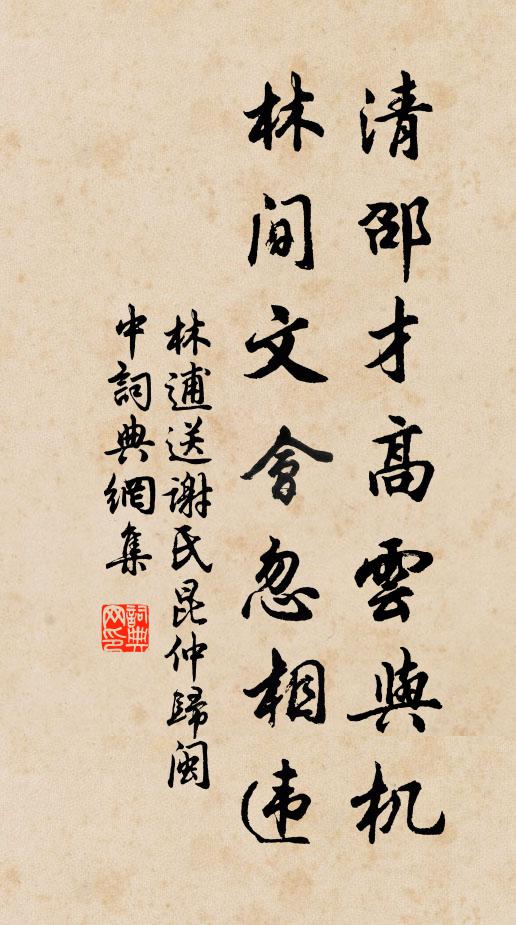 清邵才高雲與机
林间文會忽相违
林逋送谢氏昆仲歸闽
中詞典網集
詞典
网印